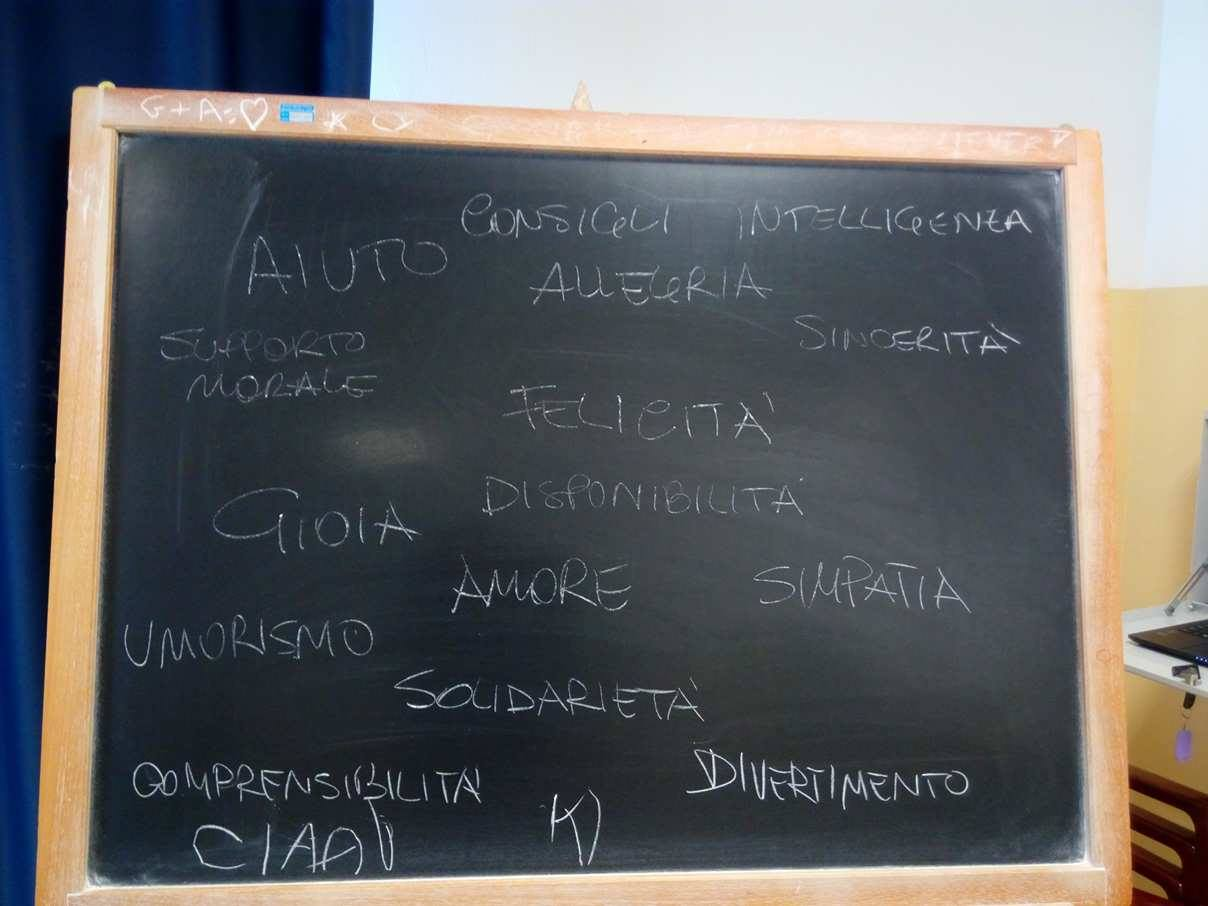 G + A = ♡
CONSIGLI INTELLIGENZA
AIUTO
ALLEGRIA
SINCERITÀ
SUPPORTO
MORALE
FELICITÀ
DISPONIBILITÀ
GIOIA
AMORE
SIMPATIA
UMORISMO
SOLIDARIETÀ
COMPRENSIBILITÀ
DIVERTIMENTO
CIAO
K)